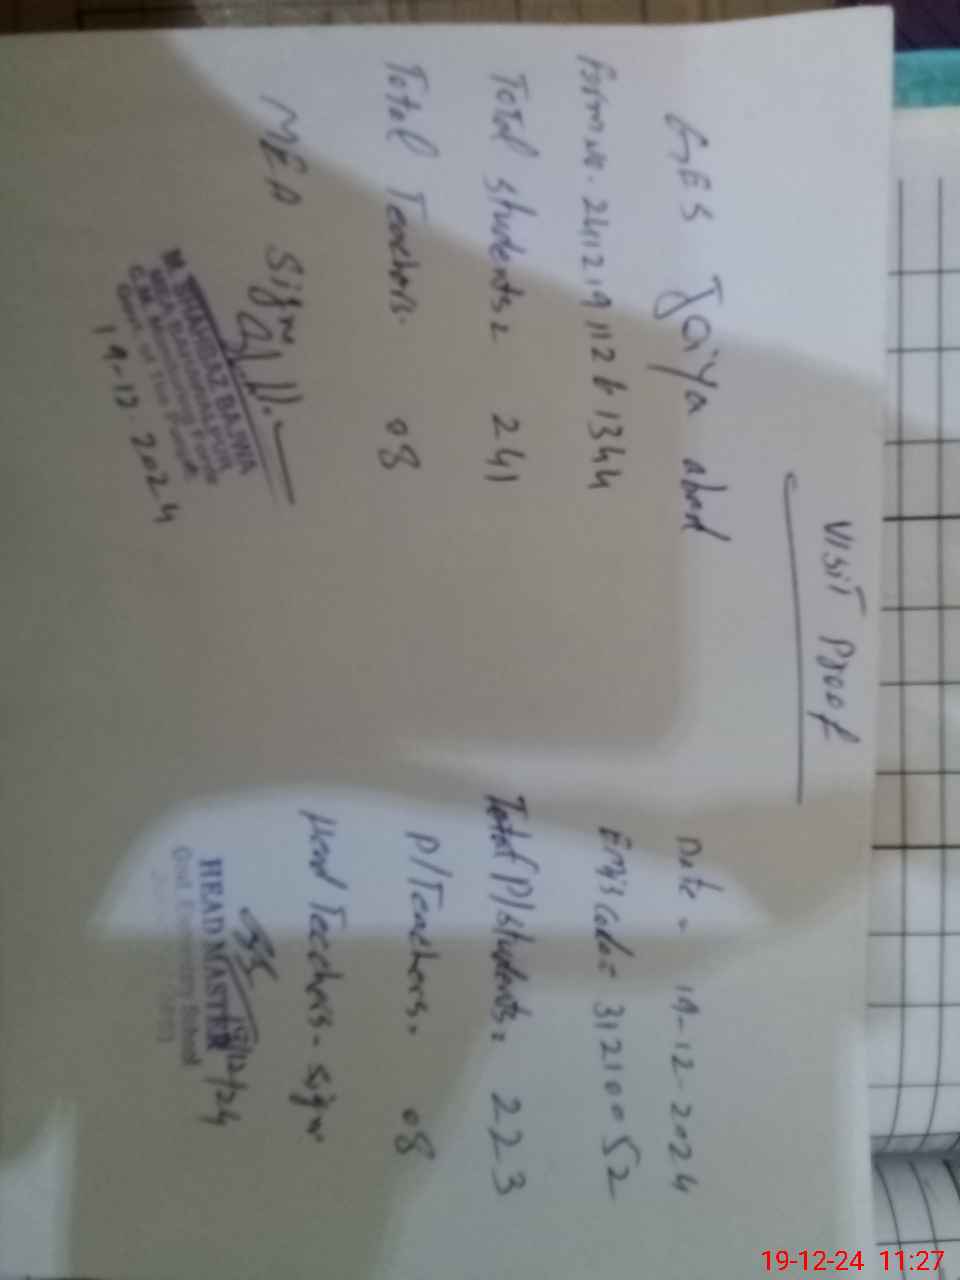 VISIT Proof
GES Jaiya abad
Date - 19-12-2024
Form no. 24121911261344
Emis code= 31210052
Total students= 241
Total P/students= 223
Total Teachers. 08
P/Teachers. 08
MEA sign
Head Teechers - sign
M. SHAHBAZ BAJWA
MEA BAHAWALPUR
C.M. Monitoring Force
Govt. of The Punjab
19-12-2024
HEAD MASTER
Govt Elementary School
/12/24
19-12-24 11:27